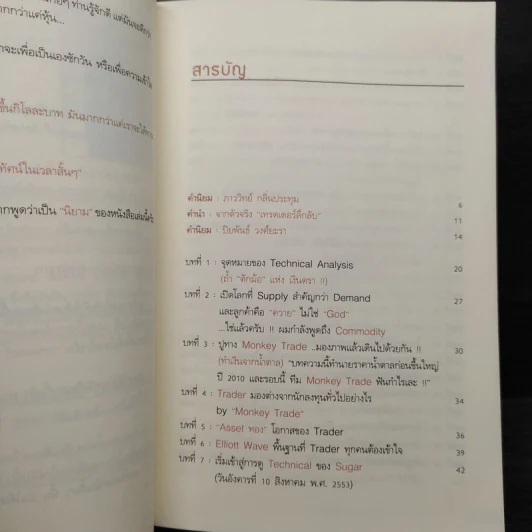 ากกว่าแค่หุ้น...
าจะเพื่อเป็นเองซักวัน หรือเพื่อความ
ขึ้นกิโลละบาท มันมากกว่าแค่เราจะได้
ทัศน์ในเวลาสั้นๆ"
ากพูดว่าเป็น "นิยาม" ของหนังสือเล่มนี้
สารบัญ
คำนิยม : ภาววิทย์ กลิ่นประทุม 6
คำนำ : จากตัวจริง "เทรดเดอร์ลึกลับ" 11
คำนิยม : ปิยพันธ์ วงศ์ยะรา 14
บทที่ 1 : จุดหมายของ Technical Analysis 20
(ถ้ำ "ตักม้อ" แห่ง เงินตรา !!)
บทที่ 2 : เปิดโลกที่ Supply สำคัญกว่า Demand 27
และลูกค้าคือ "ควาย" ไม่ใช่ "God"
...ใช่แล้วครับ !! ผมกำลังพูดถึง Commodity
บทที่ 3 : ปูทาง Monkey Trade ..มองภาพแล้วเดินไปด้วยกัน !! 30
(ทำเงินจากน้ำตาล) "บทความนี้ทำนายราคาน้ำตาลก่อนขึ้นใหญ่
ปี 2010 และรอบนี้ ทีม Monkey Trade ฟันกำไรเละ !!"
บทที่ 4 : Trader มองต่างจากนักลงทุนทั่วไปอย่างไร 34
by "Monkey Trade"
บทที่ 5 : "Asset พอง" โอกาสของ Trader 36
บทที่ 6 : Elliott Wave พื้นฐานที่ Trader ทุกคนต้องเข้าใจ 39
บทที่ 7 : เริ่มเข้าสู่การดู Technical ของ Sugar 42
(วันอังคารที่ 10 สิงหาคม พ.ศ. 2553)